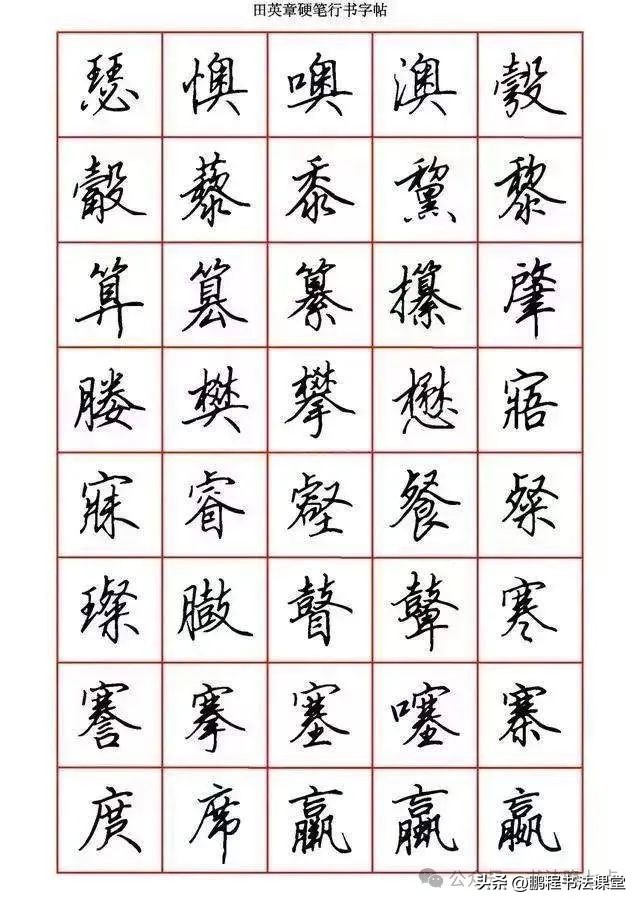 田英章硬笔行书字帖
瑟 懊 噢 澳 彀
觳 藜 黍 黧 黎
算 篡 纂 攥 肇
媵 樊 攀 懋 寤
寐 睿 壑 餐 粲
璨 臌 瞽 鼙 寒
謇 搴 塞 噻 寨
庹 席
公众
头条 @鹏程书法课堂